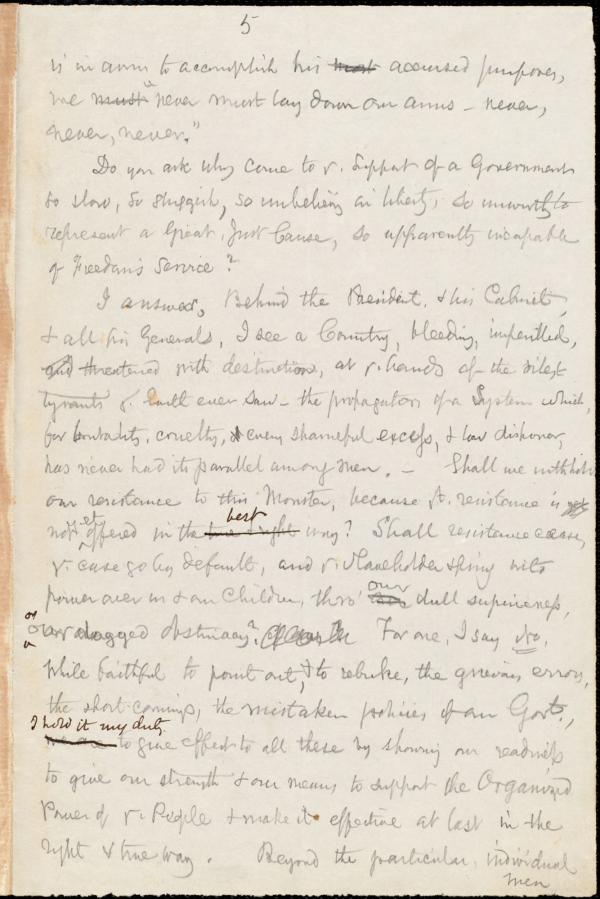 5
is in arms to accomplish his must accursed purposes,
we must never must lay down our arms – never,
never, never."
Do you ask why come to ye. Support of a Government
so slow, so sluggish, so unbelieving in liberty, so unworthy to
represent a Great, Just Cause, so apparently incapable
of Freedom's Service?
I answer, Behind the President, & his Cabinet,
& all his Generals, I see a Country, bleeding, imperilled,
and threatened with destruction, at ye. hands of the vilest
tyrants ye. Earth ever saw – the propagators of a System which,
for brutality, cruelty, & every shameful excess, & low dishonor,
has never had its parallel among men. – Shall we withhold
our resistance to this Monster, because ye. resistance is yet
not yet offered in the true & right best way? Shall resistance cease,
ye. case go by default, and ye. slaveholder spring into
power over us & our children, thro' our dull supineness,
or our dogged obstinacy? For one, I say no,
While faithful to point out, & to rebuke, the grievous errors,
the short-comings, the mistaken policies of our Govt.,
I hold it my duty
to give effect to all these by showing our readiness
to give our strength & our means to support the Organized
Power of ye. People & make it effective at last in the
right & true way. Beyond the particular, individual
men